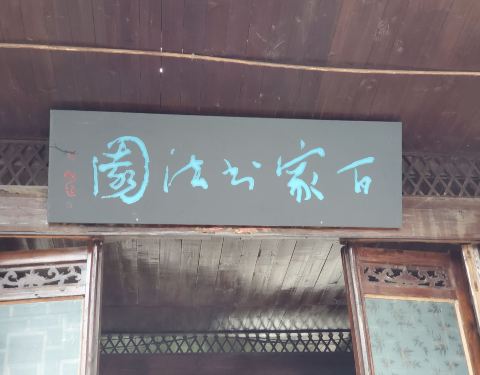 百家书法園